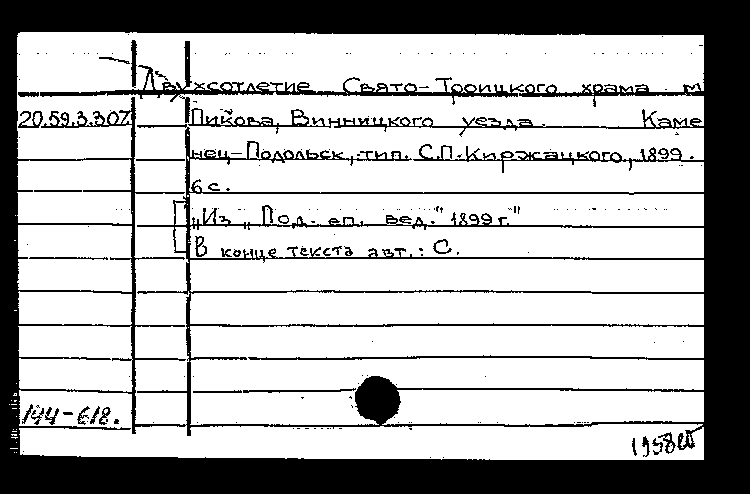 Двухсотлетие Свято-Троицкого храма м
20.59.3.307. Пикова, Винницкого уезда. Каме
нец-Подольск, тип. С.П. Киржацкого, 1899.
6 с.
„Из „Под. еп. вед." 1899 г."
В конце текста авт.: С.
144-618.